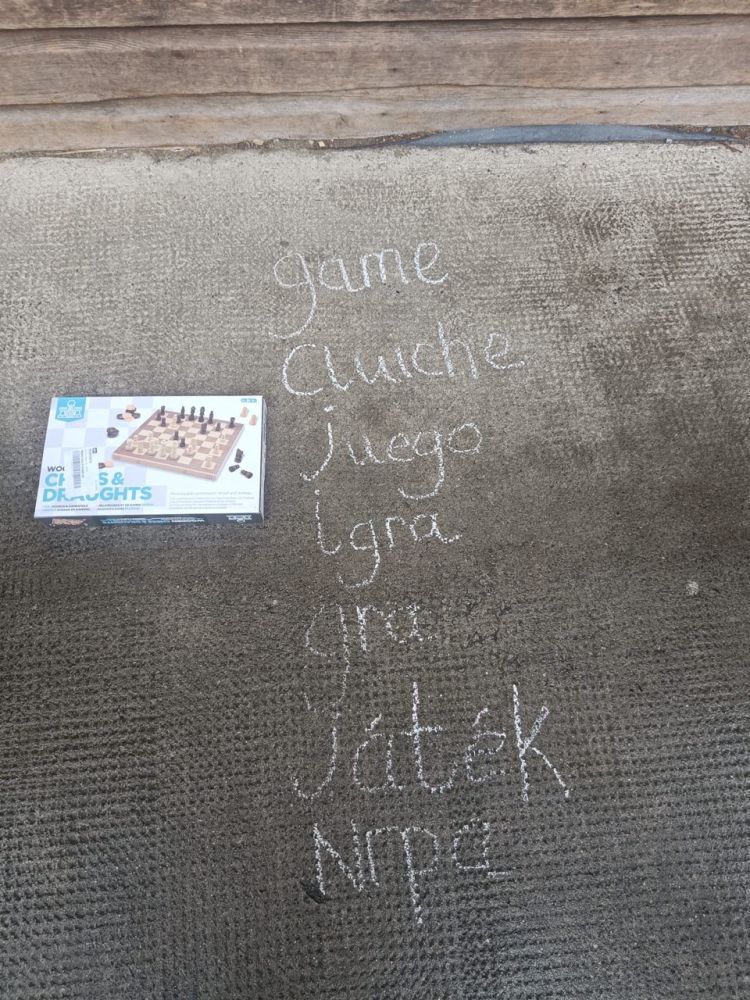 game
cluiche
juego
igra
gra
Játék
Игра
& 
DRAUGHTS